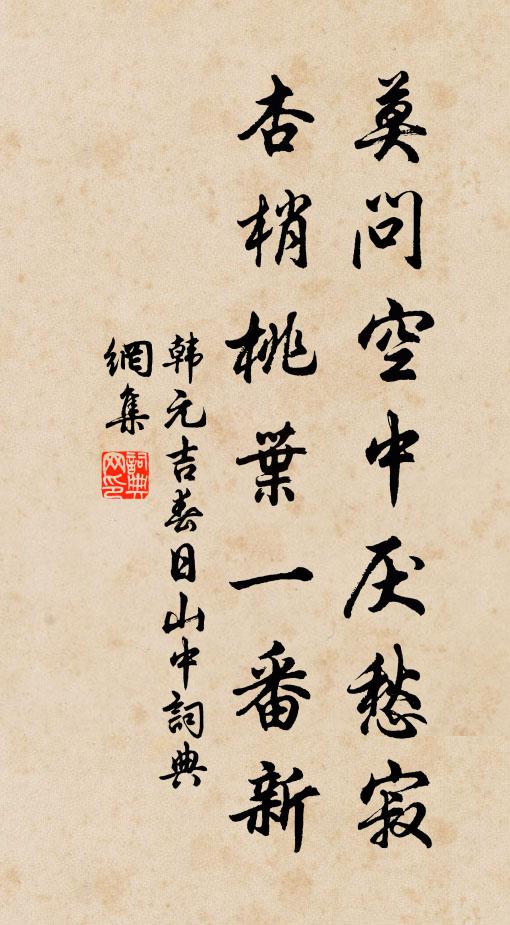 莫问空中厌愁寂
杏梢桃葉一番新
韩元吉春日山中詞典
網集
詞典网印